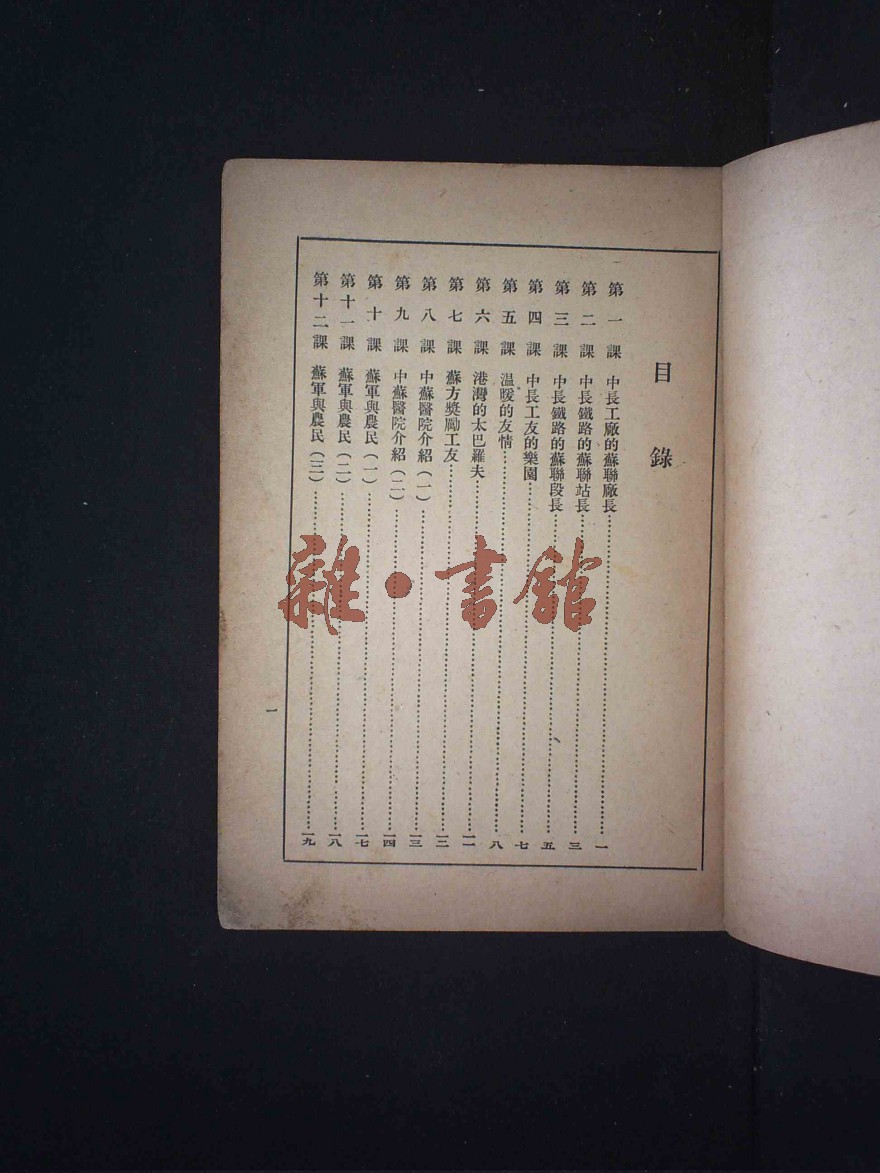 目錄
第一課 中長工廠的蘇聯廠長……一
第二課 中長鐵路的蘇聯站長……三
第三課 中長鐵路的蘇聯段長……五
第四課 中長工友的樂園……七
第五課 温暖的友情……八
第六課 港灣的太巴羅夫……一一
第七課 蘇方獎勵工友……一二
第八課 中蘇醫院介紹（一）……一三
第九課 中蘇醫院介紹（二）……一四
第十課 蘇軍與農民（一）……一七
第十一課 蘇軍與農民（二）……一八
第十二課 蘇軍與農民（三）……一九
一
雜·書館